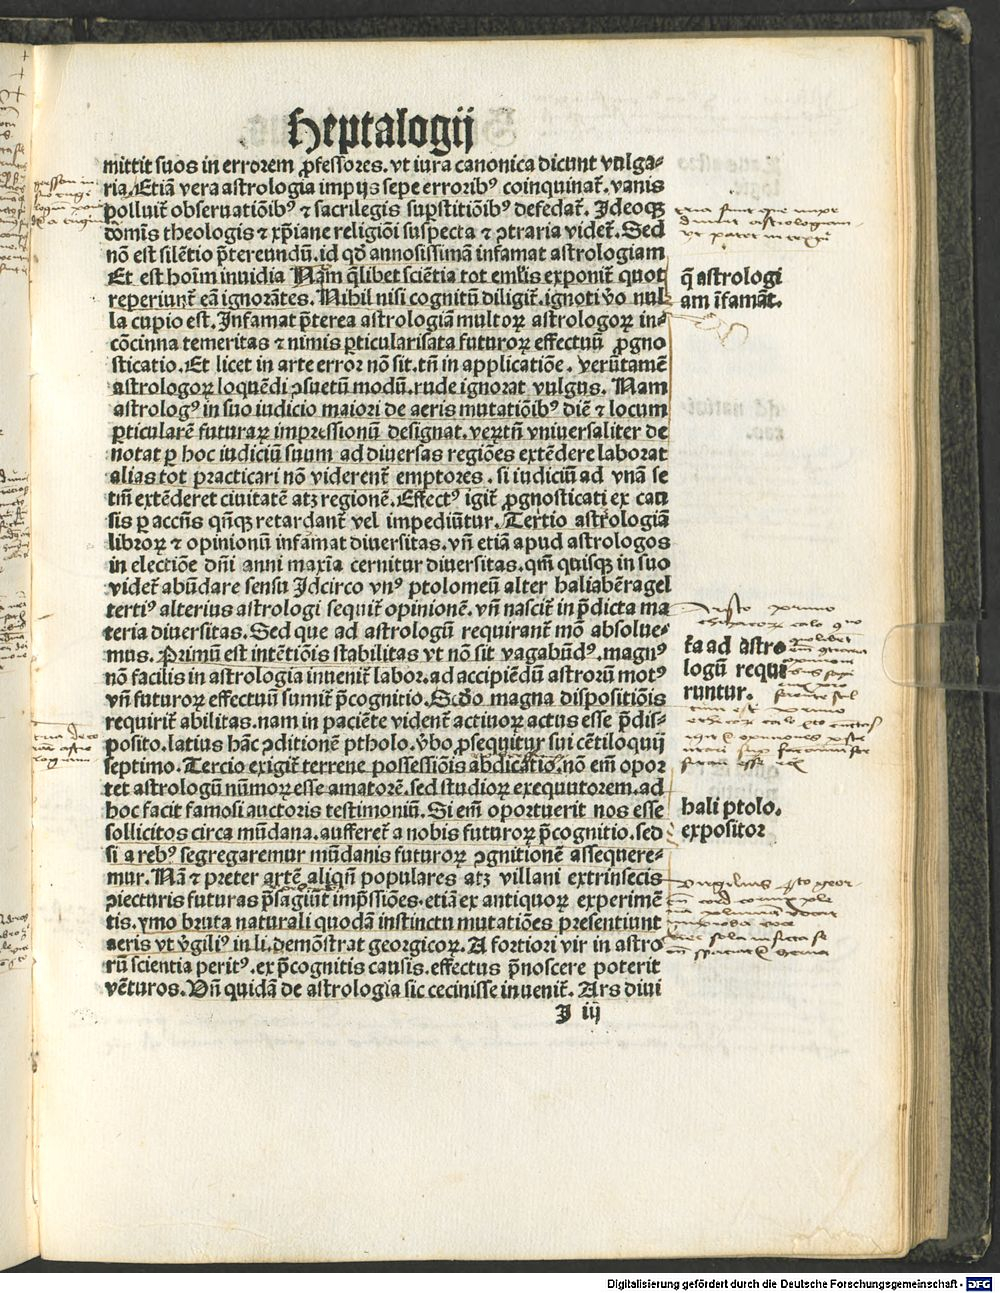 Heptalogij
mittit suos in errorem ꝓfessores. vt iura canonica dicunt vulga⸗
ria. Etiā vera astrologia impijs sepe erroribꝰ coinquinat̃. vanis
polluit̃ obseruatiōibꝰ ⁊ sacrilegis suꝑstitiōibꝰ defedat̃. Ideoqꝫ
domīs theologis ⁊ xp̄iane religiōi suspecta ⁊ ↄtraria videt̃. Sed
nō est silētio p̄tereundū. id qđ annosissimā infamat astrologiam
Et est hoīm inuidia Nam q̄libet sciētia tot emlis exponit̃ quot
reperiunt̃ eā ignorātes. Nihil nisi cognitū diligit̃. ignoti v̄o nul
la cupio est. Infamat p̄terea astrologiā multoꝝ astrologoꝝ in⸗
cōcinna temeritas ⁊ nimis ꝑticularisata futuroꝝ effectuū ꝓgno
sticatio. Et licet in arte error nō sit. tn̄ in applicatiōe. verūtamē
astrologoꝝ loquēdi ↄsuetū modū. rude ignorat vulgus. Nam
astrologꝰ in suo iudicio maiori de aeris mutatiōibꝰ diē ⁊ locum
ꝑticularē futuraꝝ impressionū designat. veꝝtn̄ vniuersaliter de
notat ꝑ hoc iudiciū suum ad diuersas regiōes extēdere laborat
alias tot practicari nō viderent̃ emptores. si iudiciū ad vnā se
tm̄ extēderet ciuitatē atꝫ regionē. Effectꝰ igit̃ ꝓgnosticati ex cau
sis ꝑ accn̄s qn̄qꝫ retardant̃ vel impediūtur. Tertio astrologiā
libroꝝ ⁊ opinionū infamat diuersitas. vn̄ etiā apud astrologos
in electiōe dn̄i anni maxīa cernitur diuersitas. qm̄ quisqꝫ in suo
videt̃ abūdare sensu Idcirco vnꝰ ptolomeū alter haliabēragel
tertiꝰ alterius astrologi sequit̃ opinionē. vn̄ nascit̃ in p̄dicta ma
teria diuersitas. Sed que ad astrologū requirant̃ mō absolue⸗
mus. Primū est intētiōis stabilitas vt nō sit vagabūdꝰ. magnꝰ
nō facilis in astrologia inuenit̃ labor. ad accipiēdū astrorū motꝰ
vn̄ futuroꝝ effectuū sumit̃ p̄cognitio. Scđo magna dispositiōis
requirit̃ abilitas. nam in paciēte vident̃ actiuoꝝ actus esse p̄dis⸗
posito. latius hāc ↄditionē ptholo. v̄bo ꝓsequitur sui cētiloquij
septimo. Tercio exigit̃ terrene possessiōis abdicatio. nō em̄ opor
tet astrologū nūmoꝝ esse amatorē. sed studioꝝ exequutorem. ad
hoc facit famosi auctoris testimoniū. Si em̄ oportuerit nos esse
sollicitos circa mūdana. aufferet̃ a nobis futuroꝝ p̄cognitio. sed
si a rebꝰ segregaremur mūdanis futuroꝝ ↄgnitionē assequere⸗
mur. Nā ⁊ preter artē aliqn̄ populares atꝫ villani extrinsecis
ↄiecturis futuras p̄sagiunt imp̄ssiōes. etiā ex antiquoꝝ experimē
tis. ymo bruta naturali quodā instinctu mutatiōes presentiunt
aeris vt v̄giliꝰ in li. demōstrat georgicoꝝ. A fortiori vir in astro
rū scientia peritꝰ. ex p̄cognitis causis. effectus p̄noscere poterit
vēturos. Vn̄ quidā de astrologia sic cecinisse inuenit̃. Ars diui
I iij
q̄ astrologi
am īfamāt.
t̄a ad astro
logū requi
runtur.
hali ptolo.
expositor
Digitalisierung gefördert durch die Deutsche Forschungsgemeinschaft - DFG